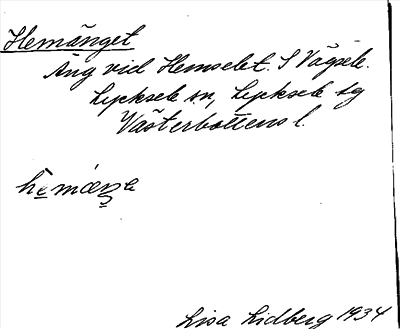 Hemänget
Äng vid Hemselet. S Vägsele.
Lycksele sn, Lycksele sg
Västerbottens l.
Lisa Lidberg 1934